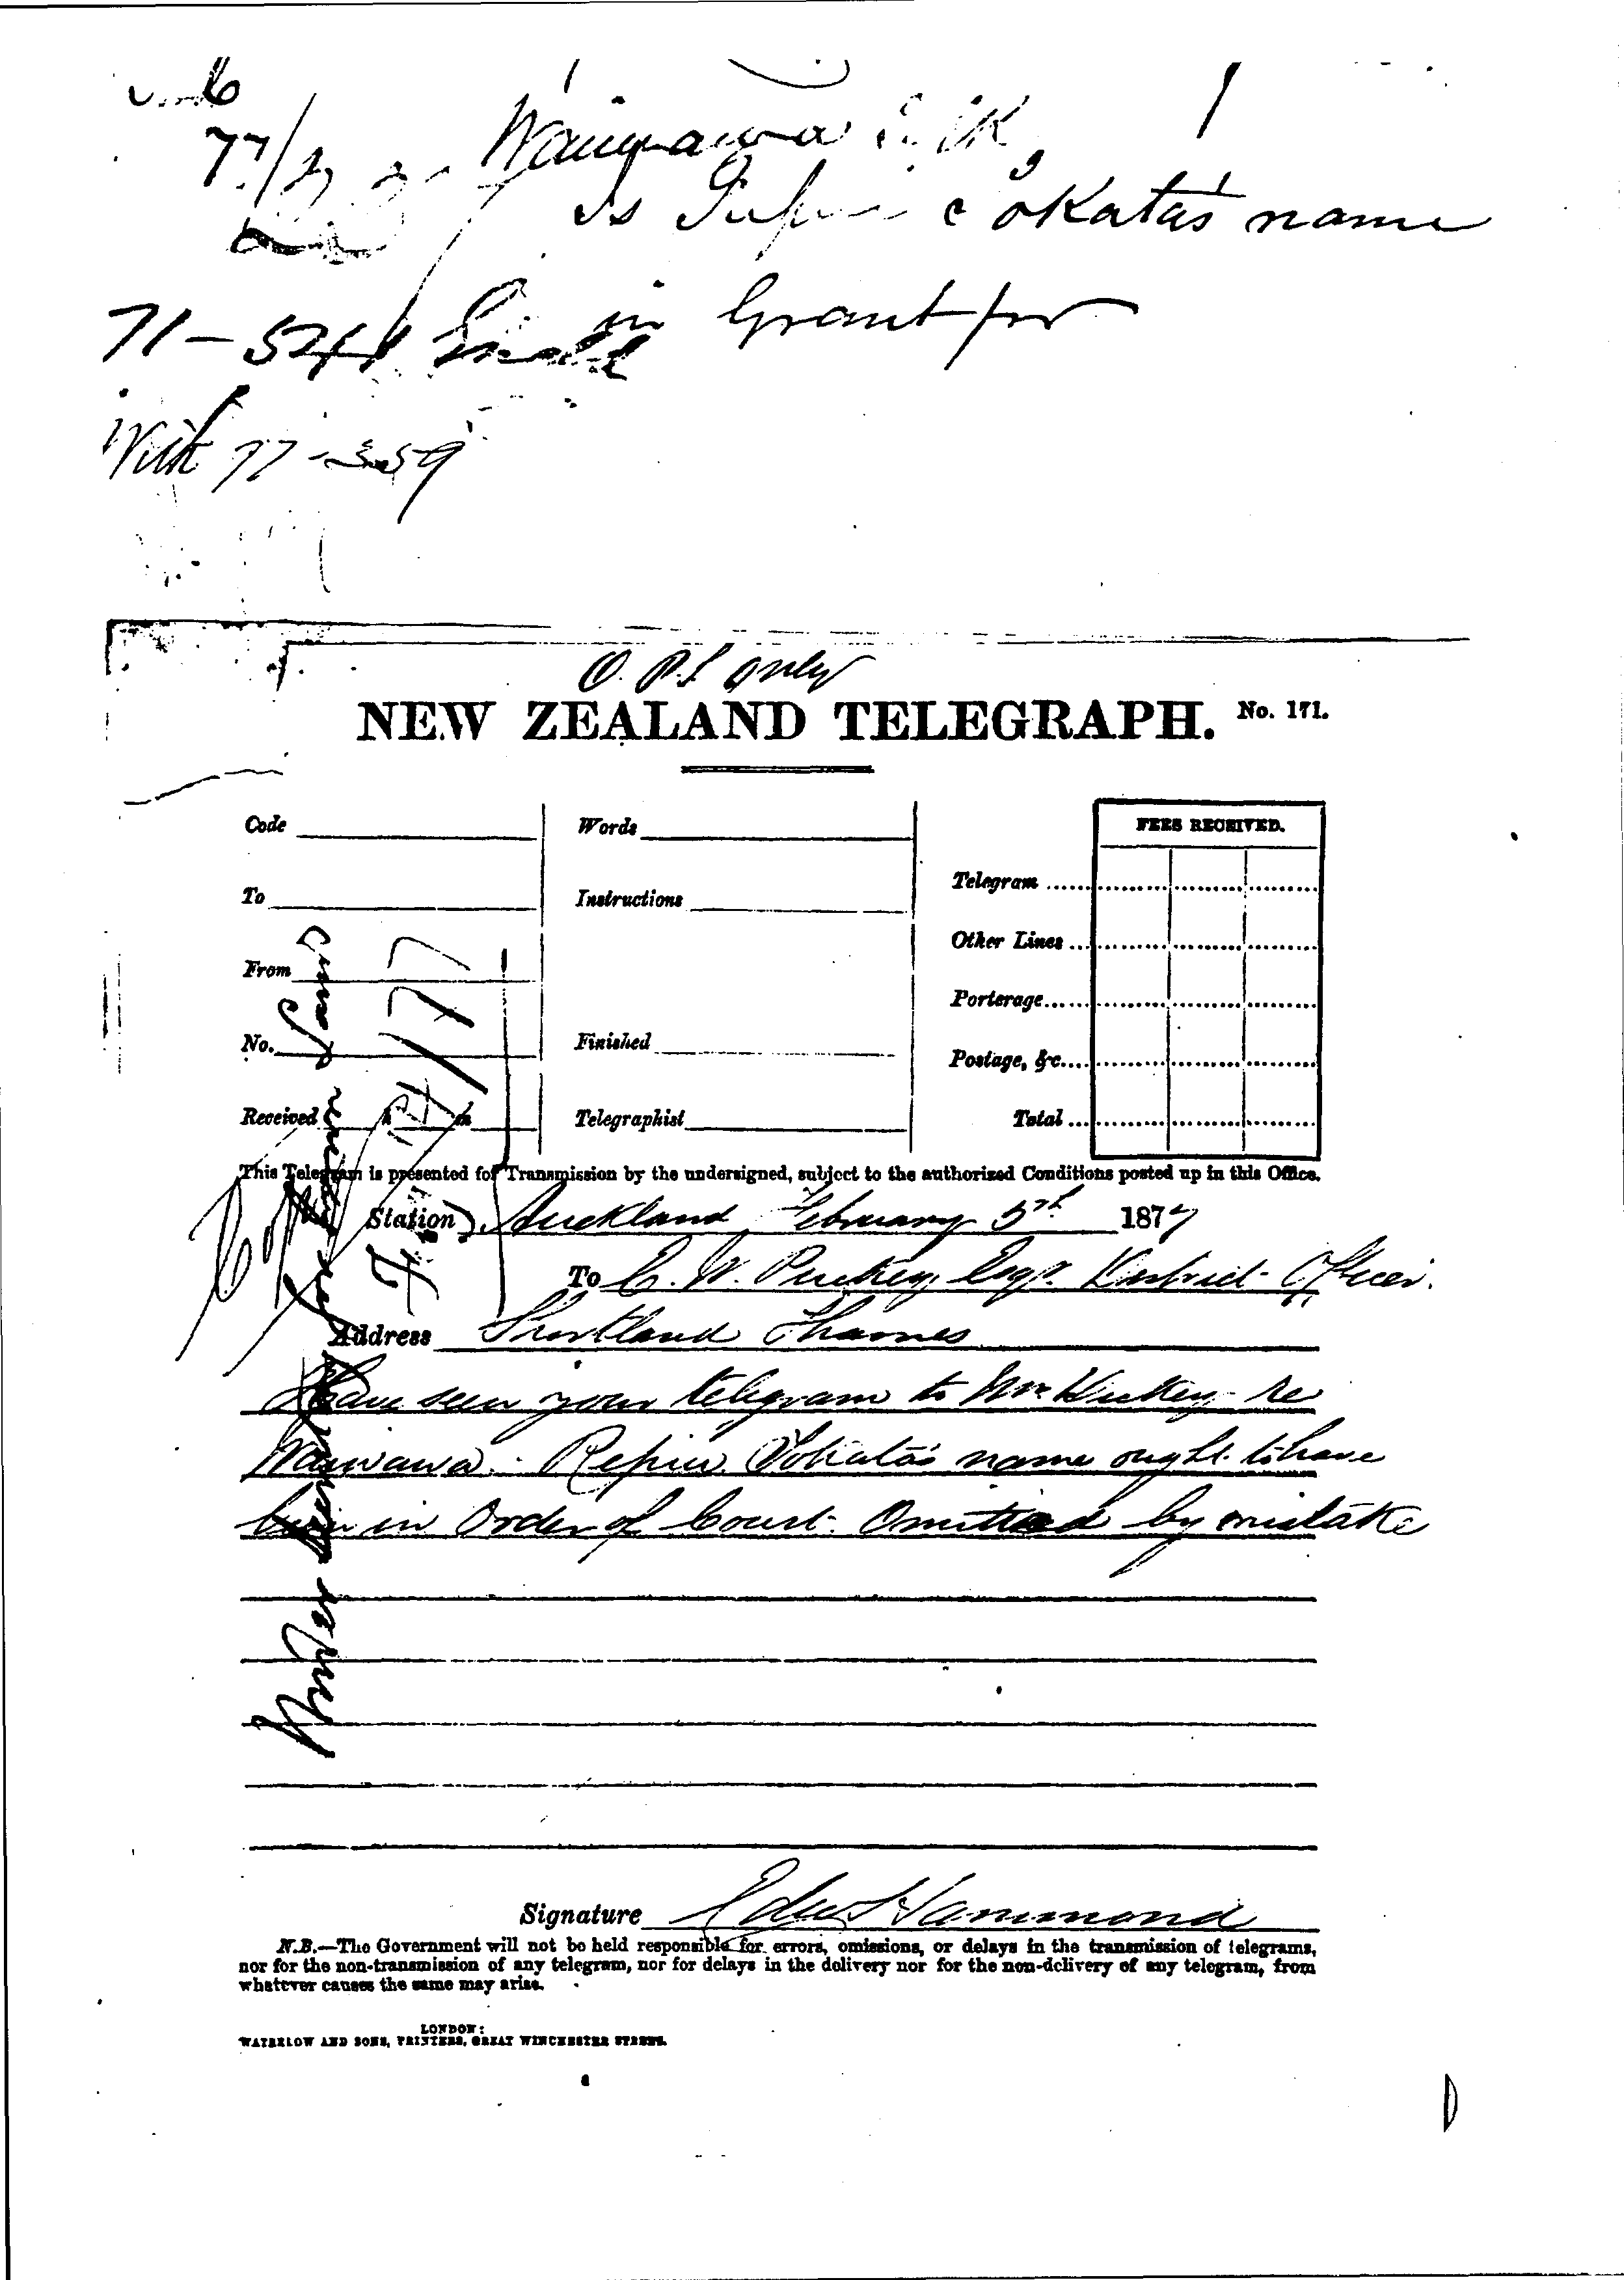 77/
Waiwawa
Is okata's name
71-5241 in Grant for
With 77-359
O.P.S only
NEW ZEALAND TELEGRAPH. No. 171.
Code
Words
FEES RECEIVED.
To
Instructions
Telegram
From
Other Lines
Porterage
No.
Finished
Postage, &c.
Received h m
Telegraphist
Total
This Telegram is presented for Transmission by the undersigned, subject to the authorized Conditions posted up in this Office.
Station Auckland February 5th 1877
To E. W. Puckey, Esqr. District Officer.
Address Shortland Thames
Have seen your telegram to Mr re
Waiwawa. name ought to have
been in Order of Court. Omitted by mistake
Under
Signature Edw Hammond
N.B.—The Government will not be held responsible for errors, omissions, or delays in the transmission of telegrams,
nor for the non-transmission of any telegram, nor for delays in the delivery nor for the non-delivery of any telegram, from
whatever causes the same may arise.
LONDON:
WATERLOW AND SONS, PRINTERS, GREAT WINCHESTER STREET.